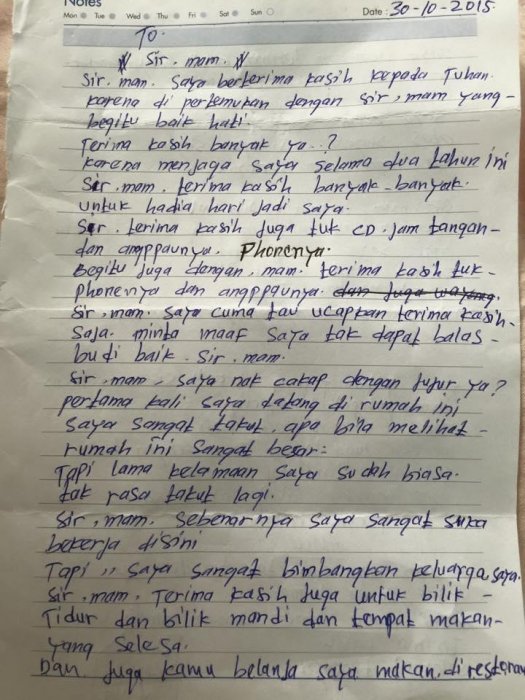 Notes
Mon Tue Wed Thu Fri Sat Sun Date: 30-10-2015.
TO.
Sir. mam.
Sir. mam. saya berterima kasih kepada Tuhan.
karena di pertemukan dengan sir, mam yang-
begitu baik hati.
Terima kasih banyak ya..?
karena menjaga saya selama dua tahun ini
Sir. mam. terima kasih banyak-banyak.
untuk hadia hari jadi saya.
Sir. terima kasih juga tuk CD. jam tangan-
dan angppaunya. Phonenya.
Begitu juga dengan, mam. terima kasih tuk-
phonenya dan angppaunya. dan juga wayang.
Sir, mam. saya cuma tau ucapkan terima kasih-
saja. minta maaf saya tak dapat balas-
budi baik. sir. mam.
Sir, mam, saya nak cakap dengan jujur ya?
pertama kali saya datang di rumah ini
saya sangat takut, apa bila melihat-
rumah ini sangat besar:
Tapi lama kelamaan saya sudah biasa.
tak rasa takut lagi.
Sir, mam. sebenarnya saya sangat suka
bekerja disini
Tapi,, saya sangat bimbangkan keluarga saya.
Sir, mam. Terima kasih juga untuk bilik-
Tidur dan bilik mandi dan tempat makan-
yang selesa.
Dan juga kamu belanja saya makan, di restoran